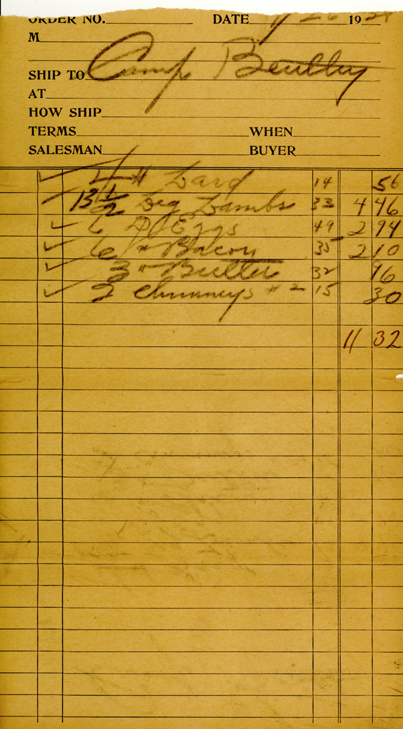 ORDER NO. DATE 11/26 19
M
Camp Bentley
SHIP TO
AT
HOW SHIP
TERMS WHEN
SALESMAN BUYER
4 # Lard 14 56
13 1/2 Leg Lambs 33 4 46
6 D/Eggs 49 2 94
6 " Bacon 35 2 10
3 " Butter 32
2 Chimneys # 2 15 30
11 32